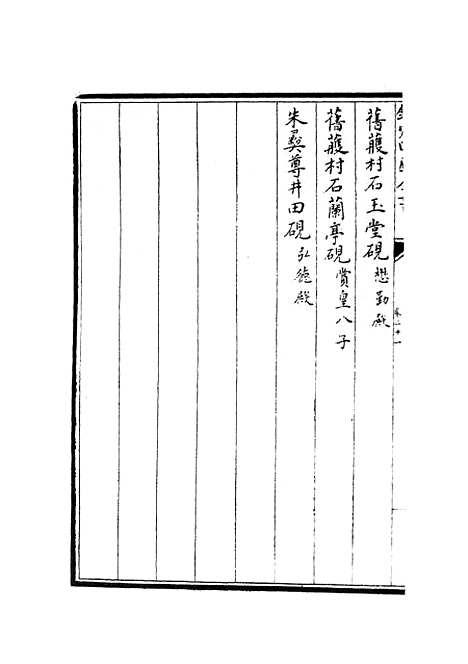 舊䕶村石玉堂硯 懋勤殿
舊䕶村石蘭亭硯 賞皇八子
朱彝尊井田硯 弘德殿